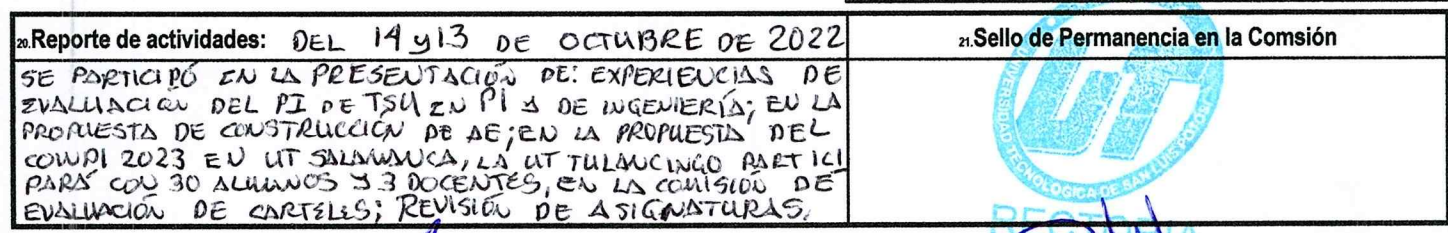 20.Reporte de actividades: DEL 14 y 13 DE OCTUBRE DE 2022
SE PARTICIPÓ EN LA PRESENTACIÓN DE: EXPERIENCIAS DE
EVALUACIÓN DEL PI DE TSU EN PI Y DE INGENIERÍA; EN LA
PROPUESTA DE CONSTRUCCIÓN DE AE; EN LA PROPUESTA DEL
COWPI 2023 EN UT SALAMANCA, LA UT TULANCINGO PARTICI
PARÁ CON 30 ALUMNOS Y 3 DOCENTES, EN LA COMISIÓN DE
EVALUACIÓN DE CARTELES; REVISIÓN DE ASIGNATURAS.
21.Sello de Permanencia en la Comsión
UT
UNIVERSIDAD TECNOLOGICA DE SAN LUIS POTOSI